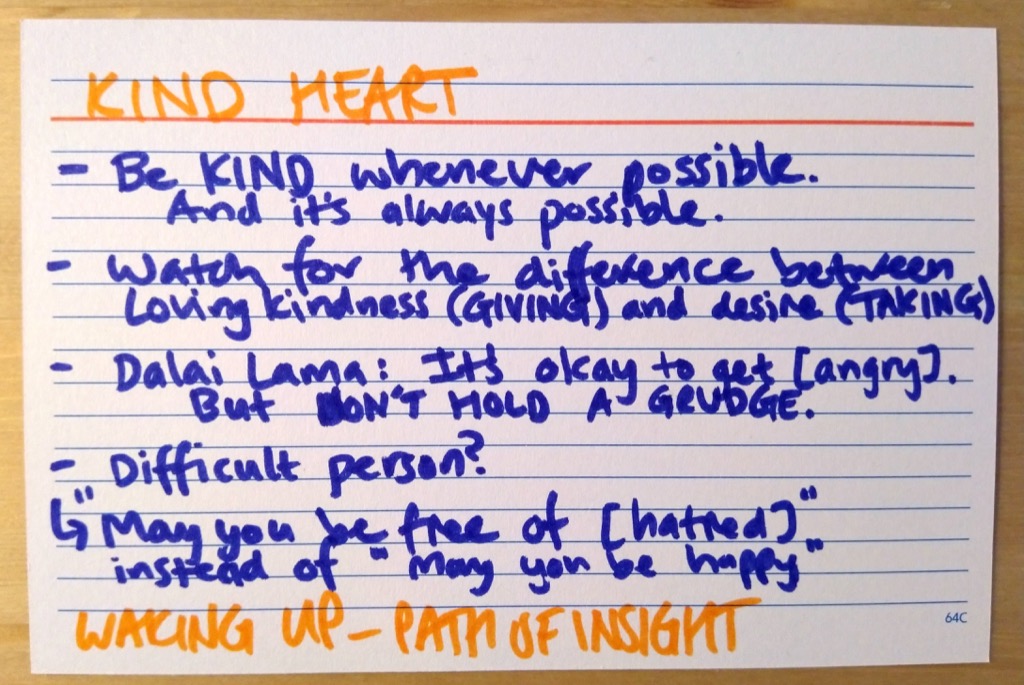 KIND HEART
- Be KIND whenever possible.
And it's always possible.
- Watch for the difference between
Loving kindness (GIVING) and desire (TAKING)
- Dalai Lama: It's okay to get [angry].
But DON'T HOLD A GRUDGE.
- Difficult person?
↳ "May you be free of [hatred]"
instead of "May you be happy"
WAKING UP - PATH OF INSIGHT
64C